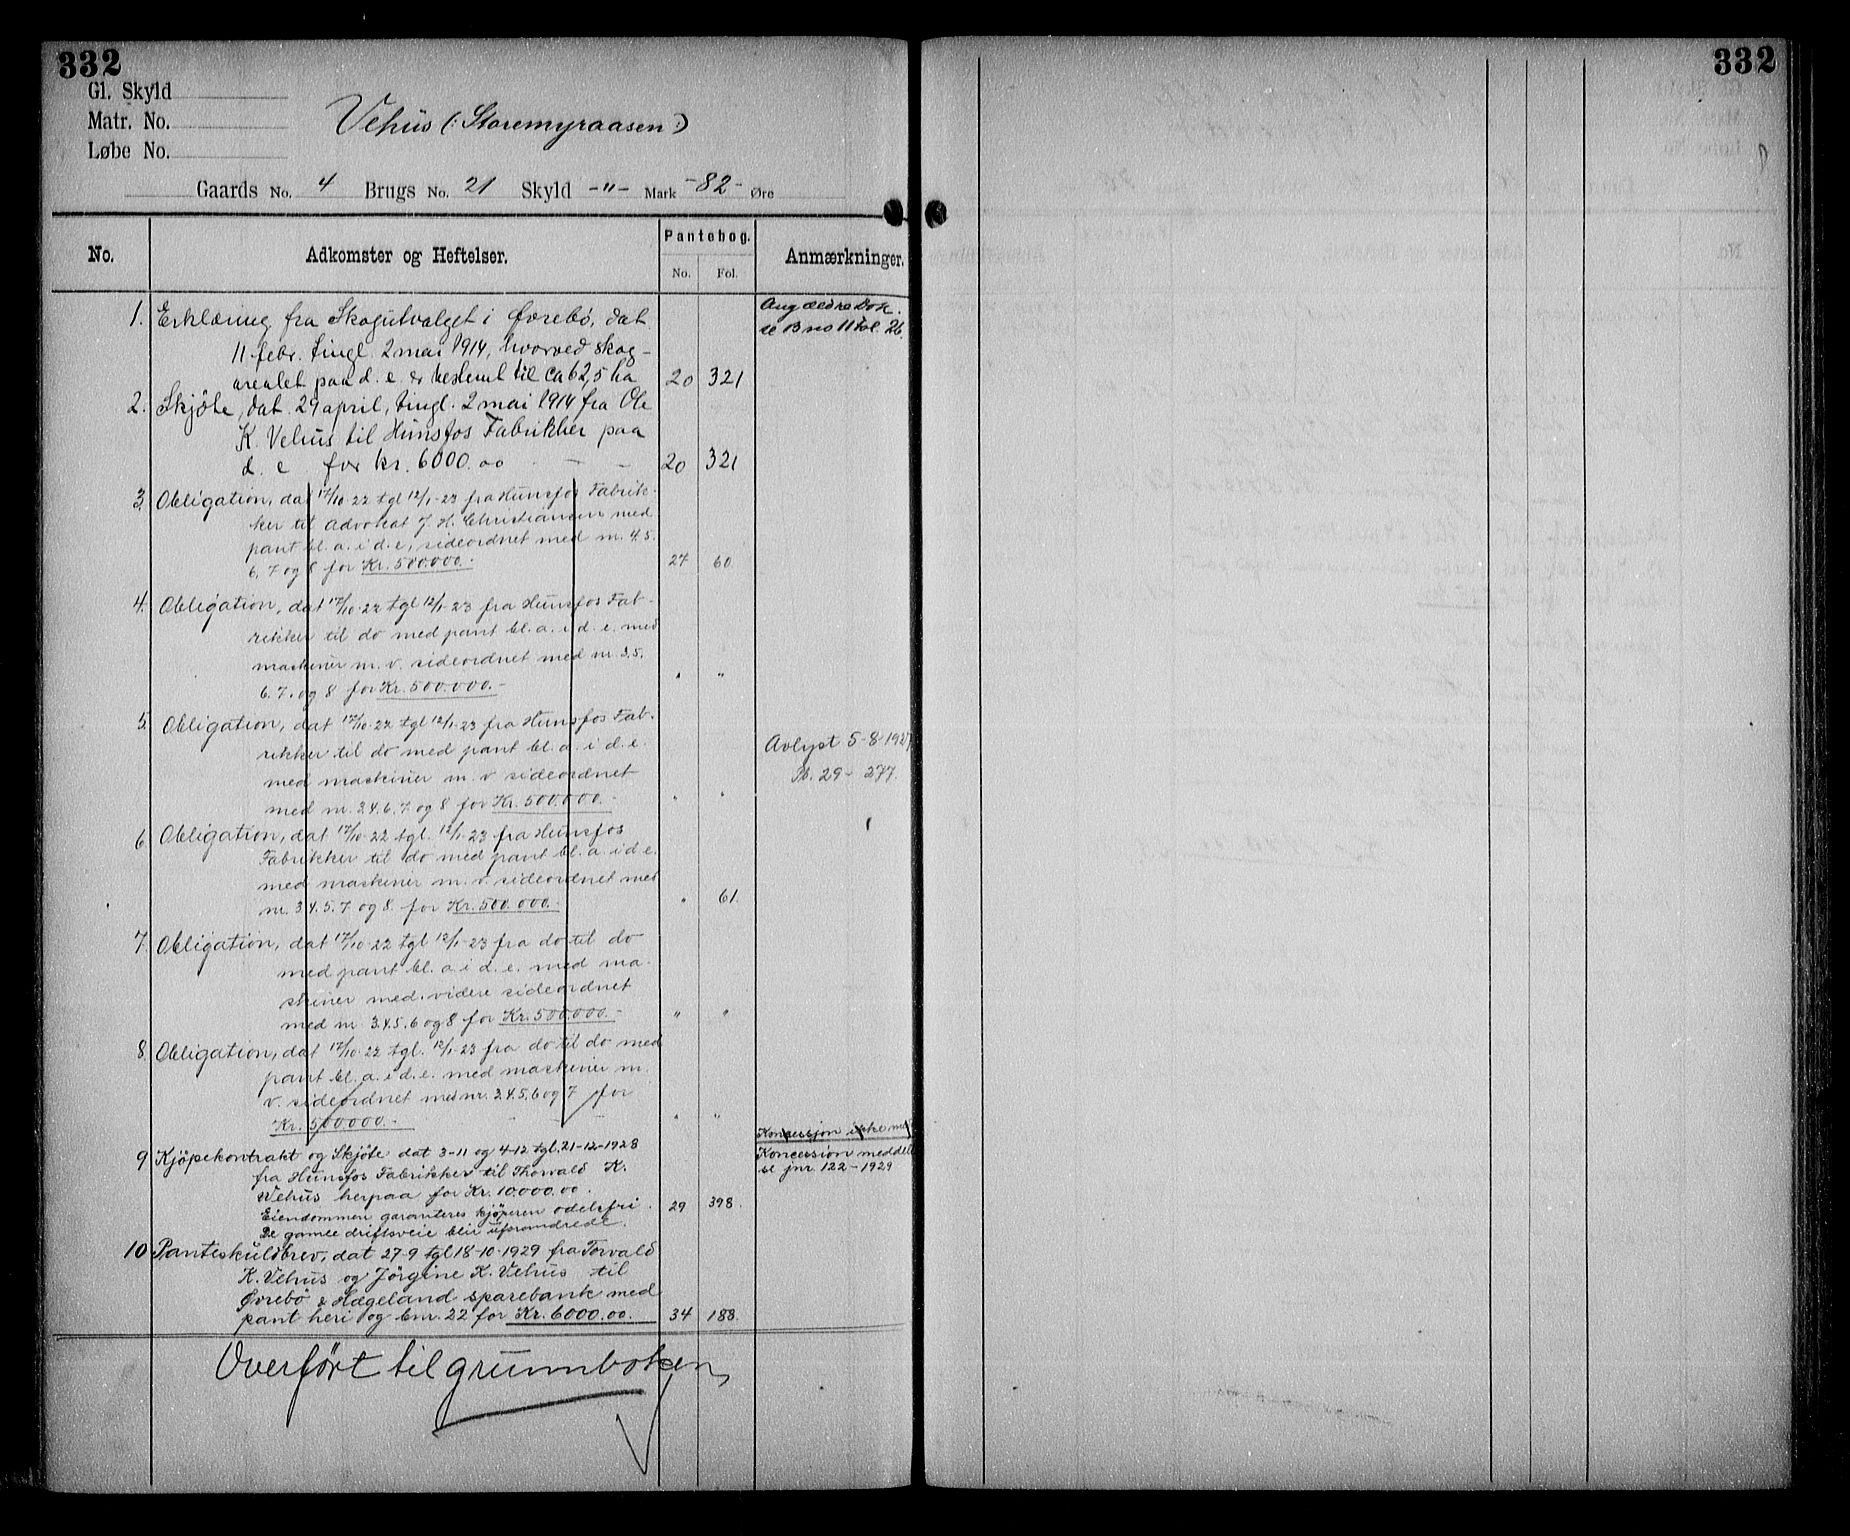 332
332
Gl. Skyld
Matr. No.
Løbe No.
Vehus (: Storemyraasen :)
Gaards No. 4 Brugs No. 21 Skyld -"- Mark -82- Øre
No.
Adkomster og Heftelser.
Pantebog.
No. Fol.
Anmærkninger.
1. Erklæring fra Skogutvalget i Øvrebö, dat
11 febr. tingl. 2 mai 1914, hvorved skog-
arealet paa d. e. er bestemt til ca 62,5 ha 20 321
Ang ældre Dok.
se B no 11 fol. 26.
2. Skjöte, dat. 29 april, tingl. 2 mai 1914 fra Ole
K. Vehus til Hunsfos Fabrikker paa
d. e for kr. 6000.00 - - 20 321
3. Obligation, dat 17/10-22 tgl 12/1-23 fra Hunsfos Fabrik-
ker til advokat J. H. Christiansen med
pant bl. a. i d. e, sideordnet med nr. 4.5.
6, 7 og 8 for Kr. 500.000.- 27 60
4. Obligation, dat 17/10-22 tgl 12/1-23 fra Hunsfos Fab-
rikker til do med pant bl. a. i d. e. med
maskiner m. v. sideordnet med nr. 3.5.
6. 7. og 8 for Kr. 500.000.- " "
5. Obligation, dat 17/10-22 tgl 12/1-23 fra Hunsfos Fab-
rikker til do med pant bl. a. i d. e.
med maskiner m. v sideordnet
med nr. 3.4.6.7 og 8 for Kr. 500.000.- " "
Avlyst 5-8-1927
Pb. 29 - 277.
6 Obligation, dat 17/10-22 tgl. 12/1-23 fra Hunsfos
Fabrikker til do med pant bl. a. i d e.
med maskiner m. v. sideordnet med
nr. 3.4.5.7 og 8. for Kr. 500.000.- " 61.
7. Obligation, dat 17/10-22 tgl 12/1-23 fra do til do
med pant bl. a. i d. e. med ma-
skiner med. videre sideordnet
med nr. 3.4.5.6 og 8 for Kr. 500.000.- " "
8. Obligation, dat 17/10-22 tgl. 12/1-23 fra do til do med
pant bl. a. i d. e. med maskiner m.
v. sideordnet med nr. 3.4.5.6 og 7 for
Kr. 500000.- - - " "
Koncessjon ikke med
9 Kjöpekontrakt og Skjöte dat 3-11 og 4-12 tgl. 21-12-1928
fra Hunsfos Fabrikker til Thorvald K.
Vehus herpaa for Kr. 10.000.00.
Eiendommen garanteres kjöperen odelsfri. 29 398.
De gamle driftsveie blir uforandrede.
Koncession meddelt
se jnr. 122-1929
10 Panteskuldbrev, dat 27-9 tgl 18-10-1929 fra Torvald
K. Vehus og Jörgine K. Vehus til
Øvrebö & Hægeland sparebank med
pant heri og bnr. 22 for Kr. 6000.00. 34 188.
Overført til grunnboken